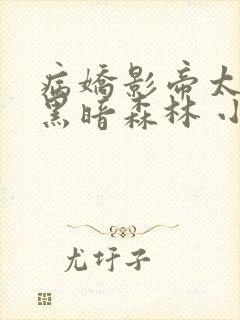 病娇影帝太
黑暗森林 小
尤圩子